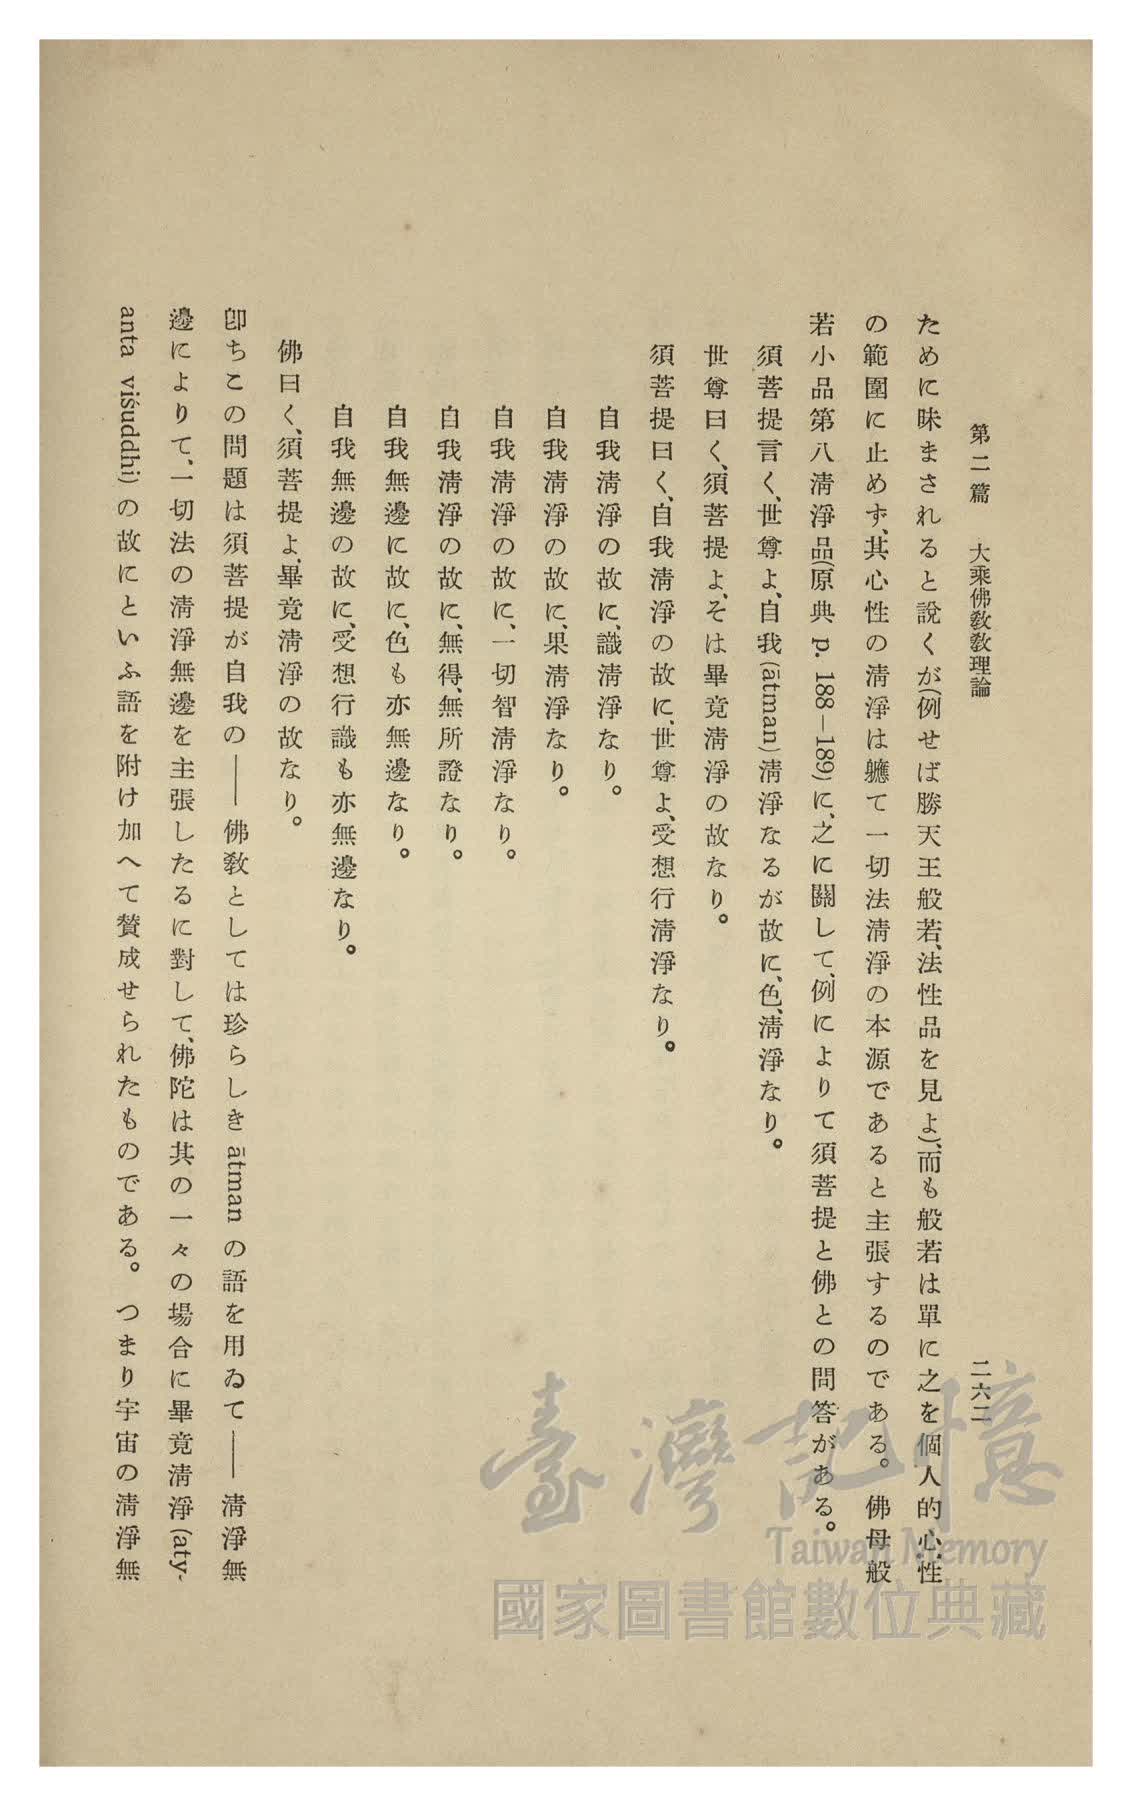 第二篇　大乘佛敎敎理論　二六二
ために昧まされると說くが(例せば勝天王般若、法性品を見よ)、而も般若は單に之を個人的心性
の範圍に止めず、其心性の淸淨は軈て一切法淸淨の本源であると主張するのである。佛母般
若小品第八淸淨品(原典 p. 188–189)に、之に關して、例によりて須菩提と佛との問答がある。
須菩提言く、世尊よ、自我(ātman)淸淨なるが故に、色、淸淨なり。
世尊曰く、須菩提よ、そは畢竟淸淨の故なり。
須菩提曰く、自我淸淨の故に、世尊よ、受想行淸淨なり。
自我淸淨の故に、識淸淨なり。
自我淸淨の故に、果淸淨なり。
自我淸淨の故に、一切智淸淨なり。
自我淸淨の故に、無得、無所證なり。
自我無邊に故に、色も亦無邊なり。
自我無邊の故に、受想行識も亦無邊なり。
佛曰く、須菩提よ、畢竟淸淨の故なり。
卽ちこの問題は須菩提が自我の――佛敎としては珍らしき ātman の語を用ゐて――淸淨無
邊によりて、一切法の淸淨無邊を主張したるに對して、佛陀は其の一々の場合に畢竟淸淨(aty-
anta viśuddhi)の故にといふ語を附け加へて賛成せられたものである。つまり宇宙の淸淨無
臺灣記憶
Taiwan Memory
國家圖書館數位典藏